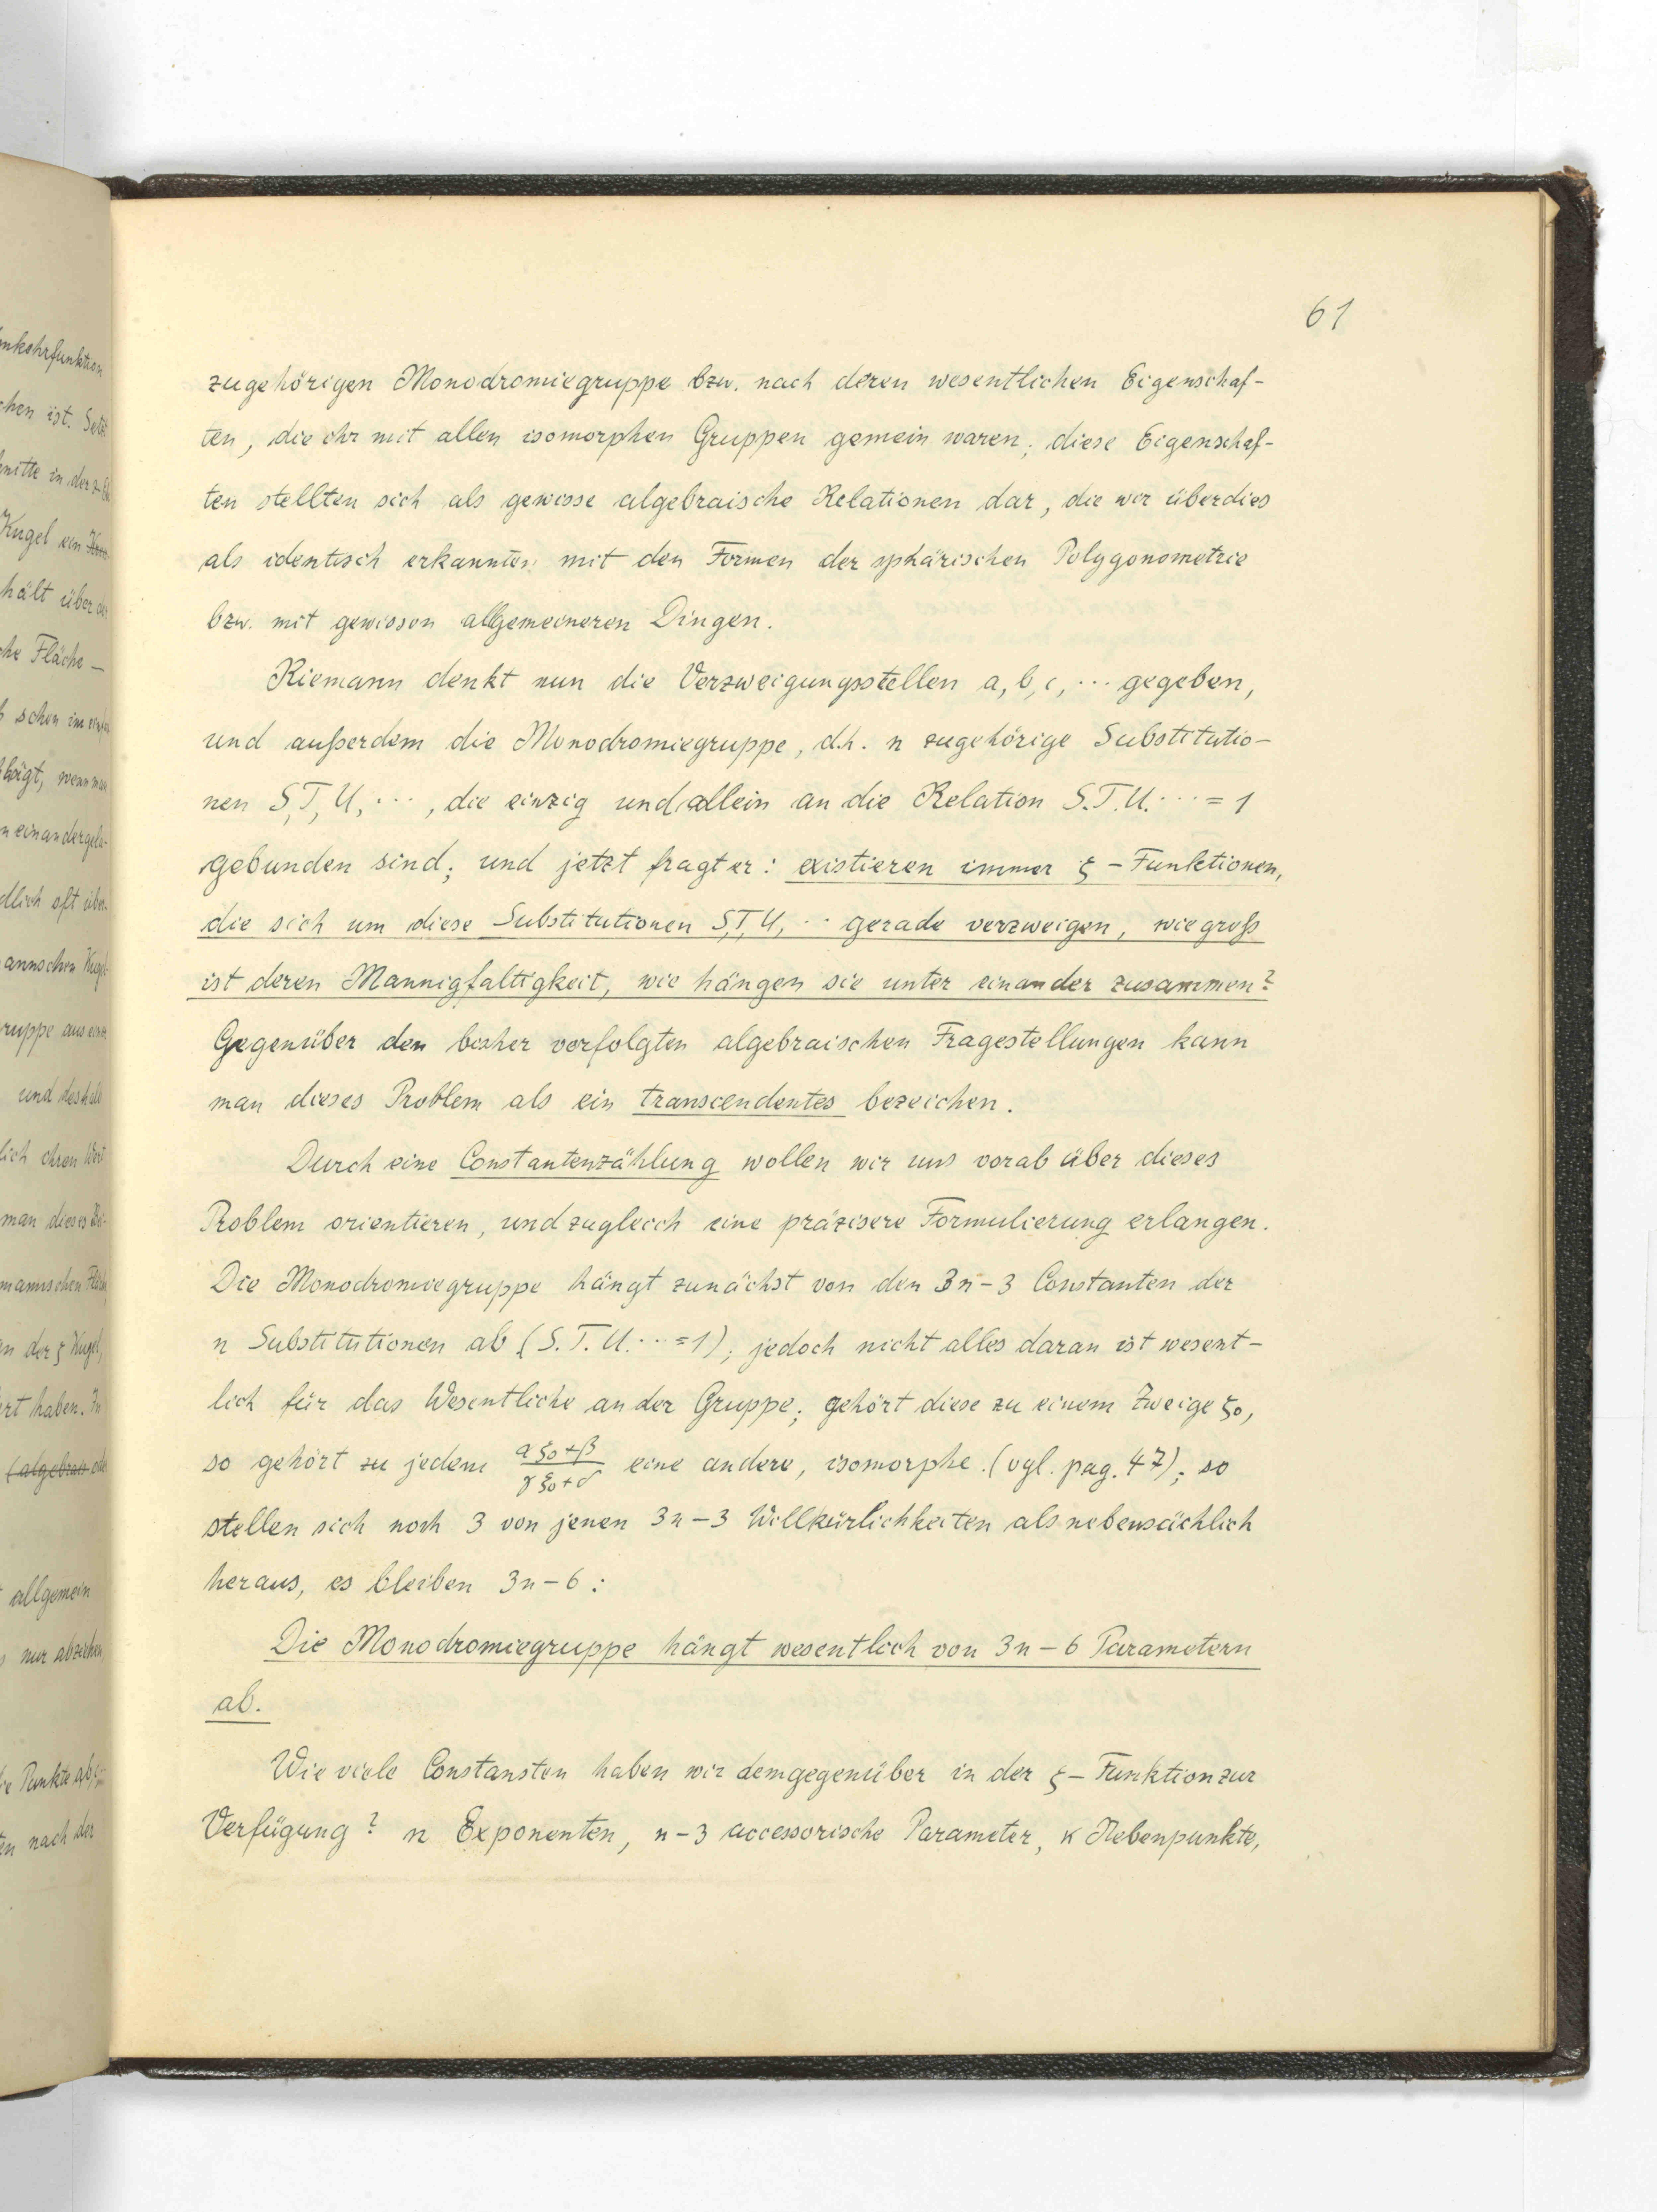 61
zugehörigen Monodromiegruppe bzw. nach deren wesentlichen Eigenschaf-
ten, die ihr mit allen isomorphen Gruppen gemein waren; diese Eigenschaf-
ten stellten sich als gewisse algebraische Relationen dar, die wir überdies
als identisch erkannten mit den Formen der sphärischen Polygonometrie
bzw. mit gewissen allgemeineren Dingen.
Riemann denkt nun die Verzweigungsstellen a, b, c, ... gegeben,
und außerdem die Monodromiegruppe, d.h. n zugehörige Substitutio-
nen S, T, U, ..., die einzig und allein an die Relation S.T.U. ... = 1
gebunden sind; und jetzt fragt er: existieren immer ζ-Funktionen,
die sich um diese Substitutionen S, T, U, ... gerade verzweigen, wie groß
ist deren Mannigfaltigkeit, wie hängen sie unter einander zusammen?
Gegenüber den bisher verfolgten algebraischen Fragestellungen kann
man dieses Problem als ein transcendentes bezeichen.
Durch eine Constantenzählung wollen wir uns vorab über dieses
Problem orientieren, und zugleich eine präzisere Formulierung erlangen.
Die Monodromiegruppe hängt zunächst von den 3n-3 Constanten der
n Substitutionen ab (S.T.U. ... = 1); jedoch nicht alles daran ist wesent-
lich für das Wesentliche an der Gruppe; gehört diese zu einem Zweige ζ₀,
so gehört zu jedem (αζ₀+β)/(γζ₀+δ) eine andere, isomorphe. (vgl. pag. 47); so
stellen sich noch 3 von jenen 3n-3 Willkürlichkeiten als nebensächlich
heraus, es bleiben 3n-6:
Die Monodromiegruppe hängt wesentlich von 3n-6 Parametern
ab.
Wie viele Constansten haben wir demgegenüber in der ζ-Funktion zur
Verfügung? n Exponenten, n-3 accessorische Parameter, κ Nebenpunkte,